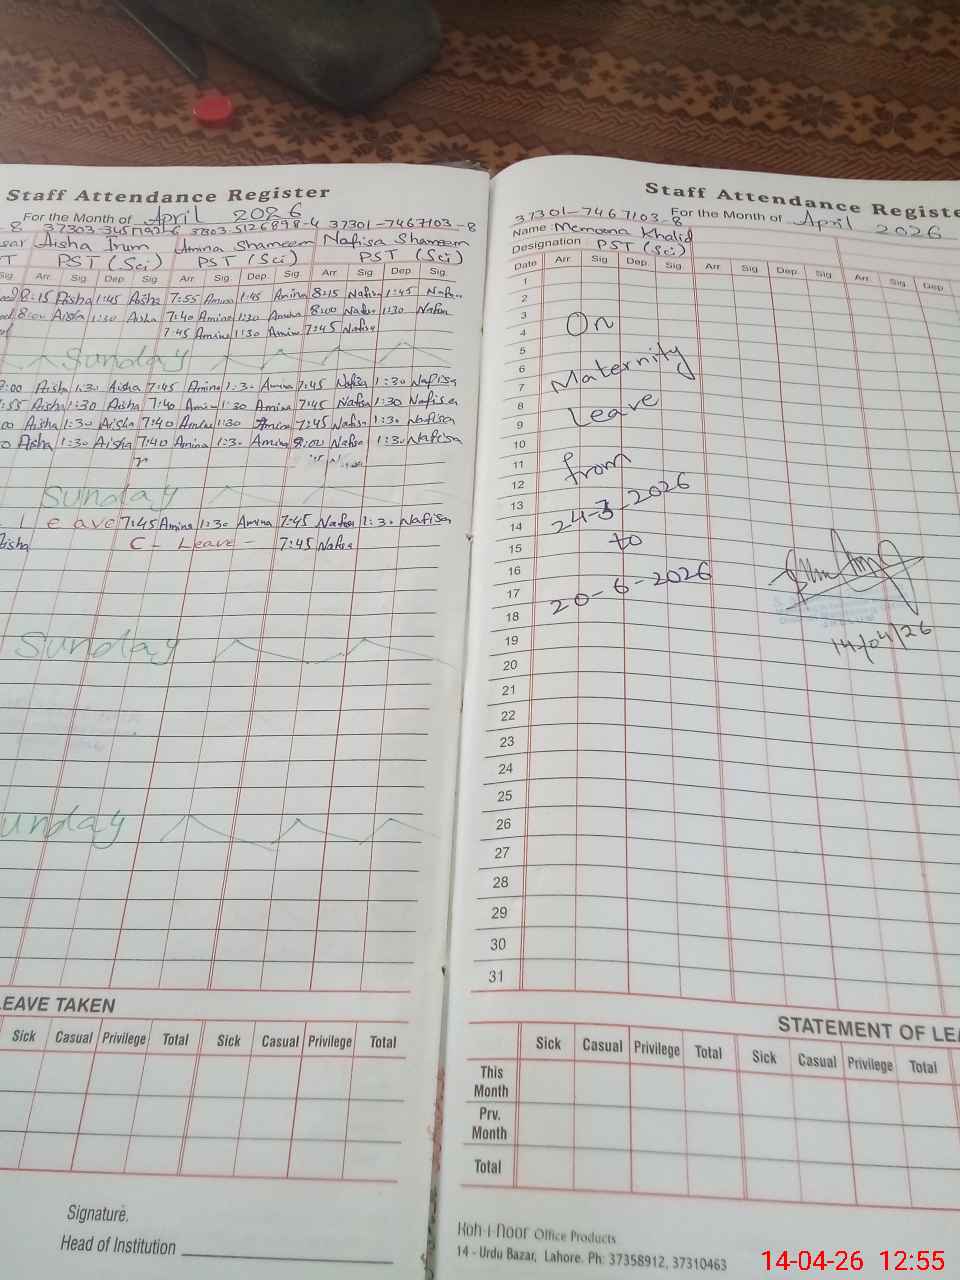 Staff Attendance Register
For the Month of April 2026
37303-3451792-6 37301-7467103-8
Aisha Irum Amina Shameem Nafisa Shameem
PST (Sci) PST (Sci) PST (Sci)
Sig. Arr. Sig Dep. Sig Arr. Sig Dep. Sig Arr. Sig Dep. Sig.
8:15 Aisha 1:45 Aisha 7:55 Amina 1:45 Amina 8:15 Nafisa 1:45
8:00 Aisha 1:30 Aisha 7:40 Amina 1:30 Amina 8:00 1:30
7:45 Amina 1:30 Amina 7:45 Nafisa
Sunday
:00 Aisha 1:30 Aisha 7:45 Amina 1:30 Amina 7:45 Nafisa 1:30 Nafisa
:55 Aisha 1:30 Aisha 7:40 Amina 1:30 Amina 7:45 Nafisa 1:30 Nafisa
00 Aisha 1:30 Aisha 7:40 Amina 1:30 Amina 7:45 Nafisa 1:30 Nafisa
0 Aisha 1:30 Aisha 7:40 Amina 1:30 Amina 8:00 Nafisa 1:30 Nafisa
Sunday
Leave 7:45 Amina 1:30 Amina 7:45 Nafisa 1:30 Nafisa
Aisha C - Leave - 7:45 Nafisa
Sunday
unday
LEAVE TAKEN
Sick Casual Privilege Total Sick Casual Privilege Total
Signature.
Head of Institution
Staff Attendance Registe
37301-7467103-8 For the Month of April 2026
Name Memoona Khalid
Designation PST (Sci)
Date Arr. Sig Dep. Sig Arr. Sig Dep. Sig Arr. Sig. Dep.
1
2
3
4 On
5
6
7 Maternity
8
9 Leave
10
11
12 from
13
14 24-3-2026
15 to
16
17 20-6-2026
18
19 14/04/26
20
21
22
23
24
25
26
27
28
29
30
31
STATEMENT OF LEA
Sick Casual Privilege Total Sick Casual Privilege Total
This Month
Prv. Month
Total
Koh-i-noor Office Products
14 - Urdu Bazar, Lahore. Ph: 37358912, 37310463
14-04-26 12:55